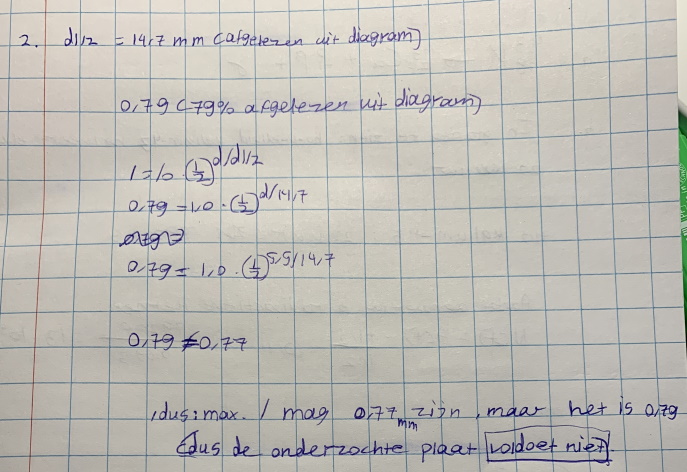 2. d1/2 = 14,7 mm (afgelezen uit diagram)
0,79 (79% afgelezen uit diagram)
I = I0 · (1/2)^d/d1/2
0,79 = 1,0 · (1/2)^d/14,7
0,79 =
0,79 = 1,0 · (1/2)^5,5/14,7
0,79 ≠ 0,77
dus: max. I mag 0,77 mm zijn, maar het is 0,79
dus de onderzochte plaat voldoet niet.